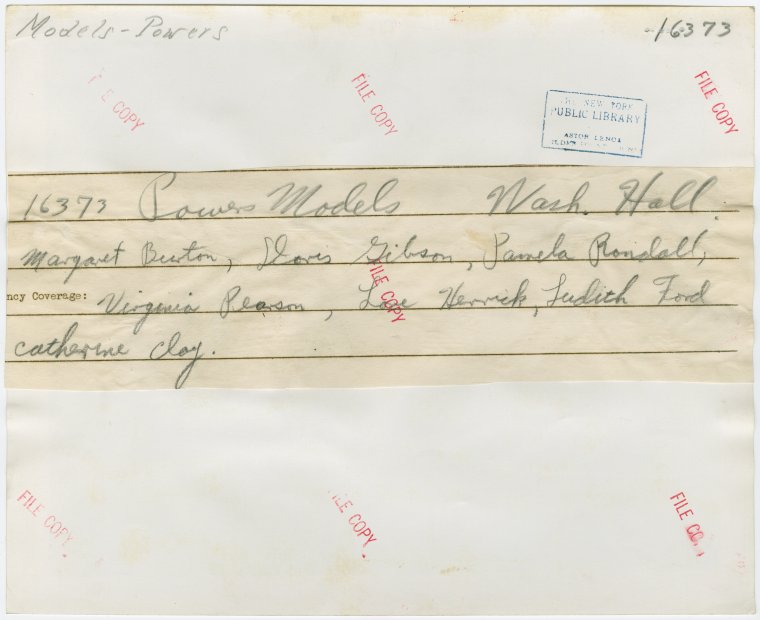 Models - Powers
16373
FILE COPY
FILE COPY
FILE COPY
THE NEW YORK
PUBLIC LIBRARY
ASTOR LENOX
16373 Powers Models Wash. Hall.
Margaret Burton, Doris Gibson, Pamela Randall,
FILE COPY
ncy Coverage: Virginia Pearson, Herrick, Judith Ford
Catherine Clay.
FILE COPY
FILE COPY
FILE CO